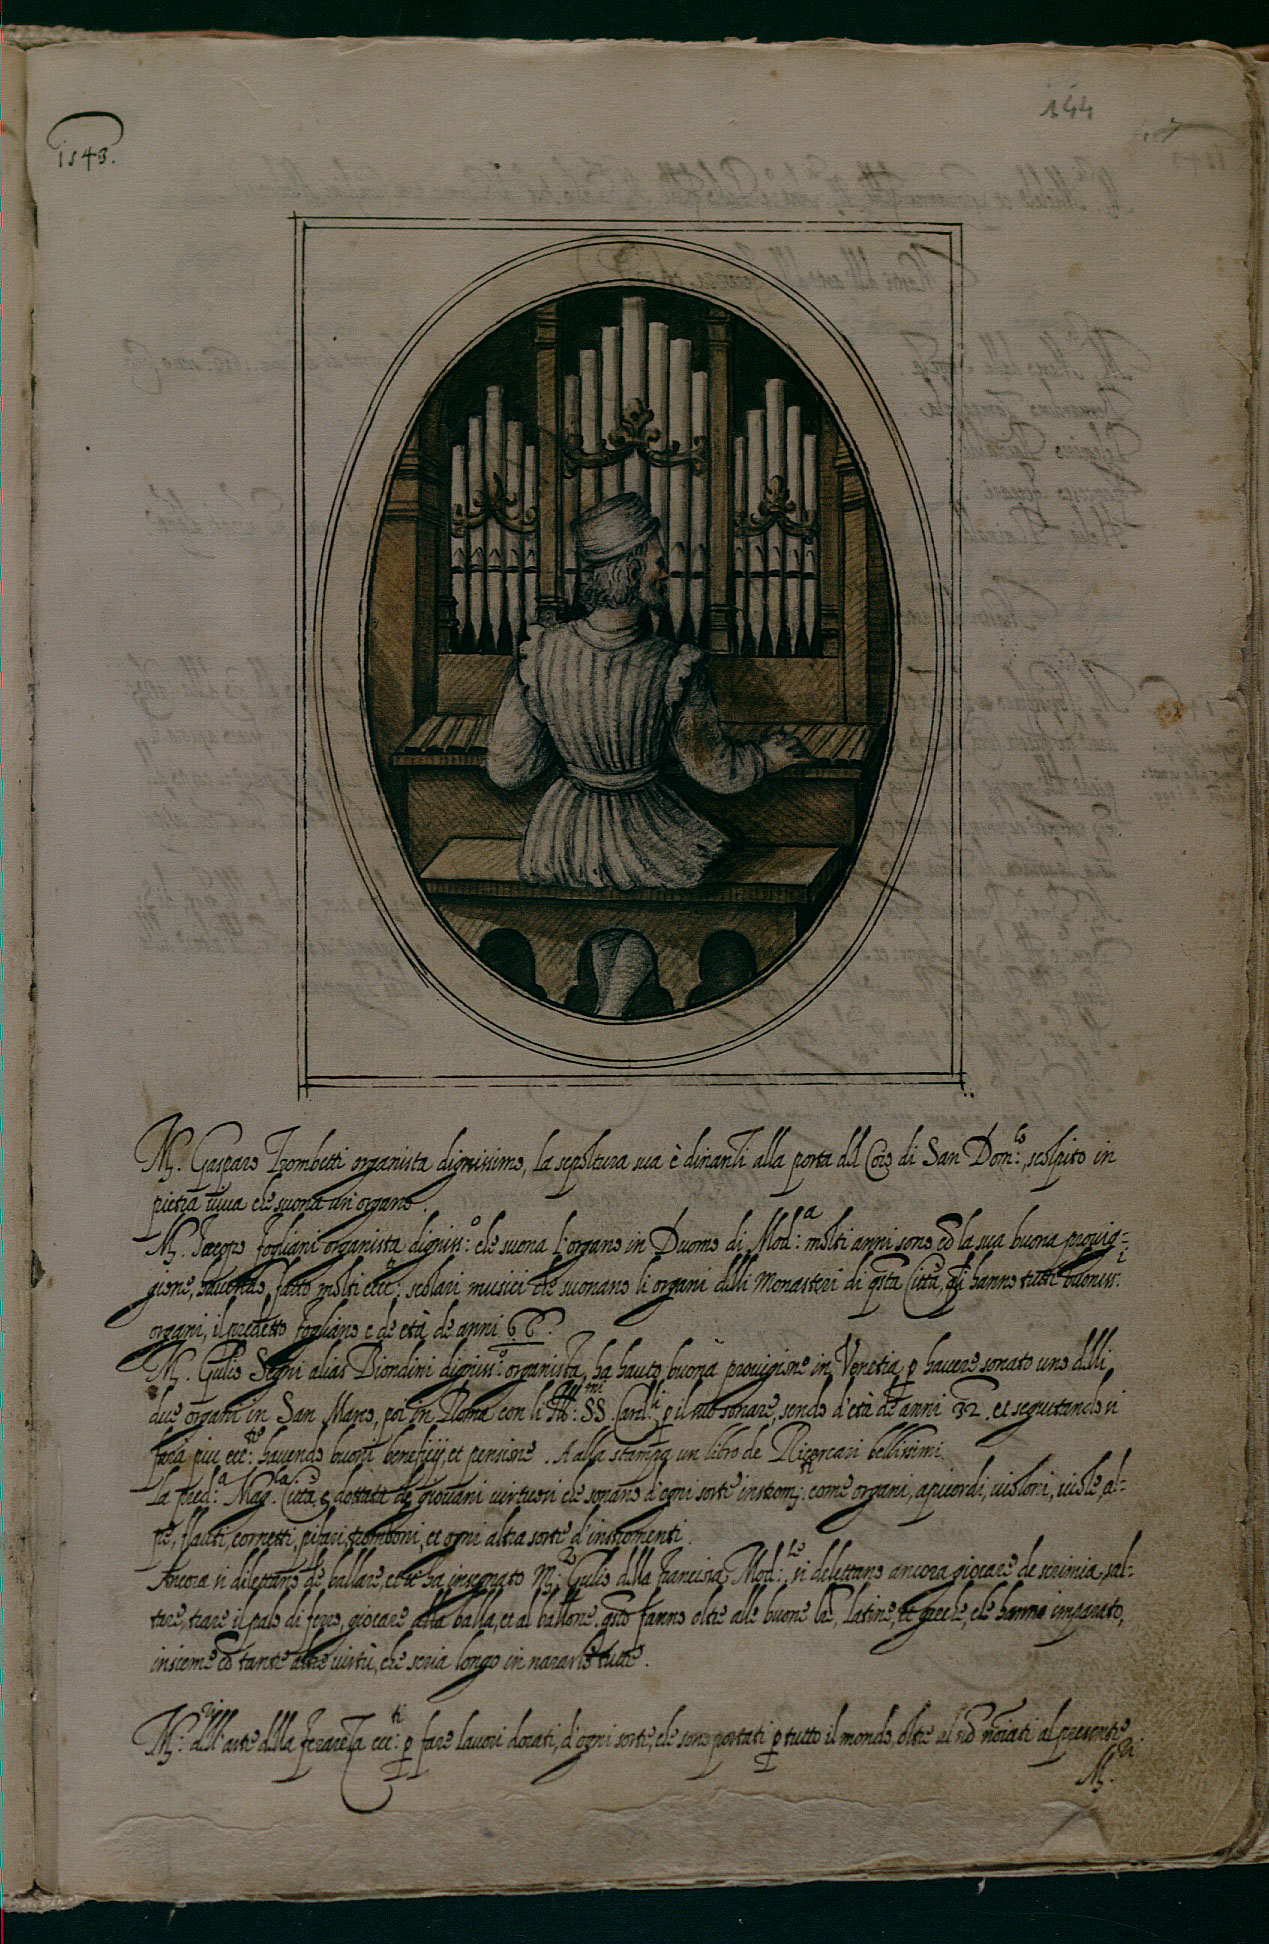 144
1543.
M. Gasparo Trombetti organista dignissimo, la sepoltura sua è dinanti alla porta dll Coro di San Dom:co, scolpito in
pietra viva che suona un organo.
M. Jacopo Fogliani organista digniss:o che suona l'organo in Duomo di Mod:a molti anni sono cō la sua buona provig-
gione, havendo fatto molti ecc:ti scolari musici che suonano li organi dlli Monasteri di qsta Città, qli hanno tutti buoniss:i
organi, il predetto Fogliano e de età de anni
M. Giulio Segni alias Biondini digniss:o organista, ha hauto buona provigione in Venetia p havere sonato uno dlli
due organi in San Marco, poi in Roma con li Ill:mi SS. Card:li p il suo sonare, sendo d'età de anni 32. et seguitando si
farà piu ecc:te havendo buoni beneficij, et pensione. A alla stampa un libro de Ricercari bellissimi.
La pred:a Mag:ca Città e dottata de giovani virtuosi che sonano d'ogni sorte instrom:ti come organi, apicordi, violoni, viole, al-
pe, flauti, cornetti, pifari, tromboni, et ogni altra sorte d'instromenti.
Ancora si dilettano de ballare, et li ha insegnato M.ro Giulio dlla Francisca Mod:se, si delettano ancora giocare de scrimia, sal-
tare, trare il palo di fero, giocare alla balla, et al ballone. qsto fanno oltre alle buone lrē, latine, et greche, che hanno imparato,
insieme cō tante altre virtù, che seria longo in nararle tutte.
M:ri dll'arte dlla ecc:ti p fare lavori dorati, d'ogni sorte, che sono portati p tutto il mondo, oltre al nō noīati al presente
M.ri